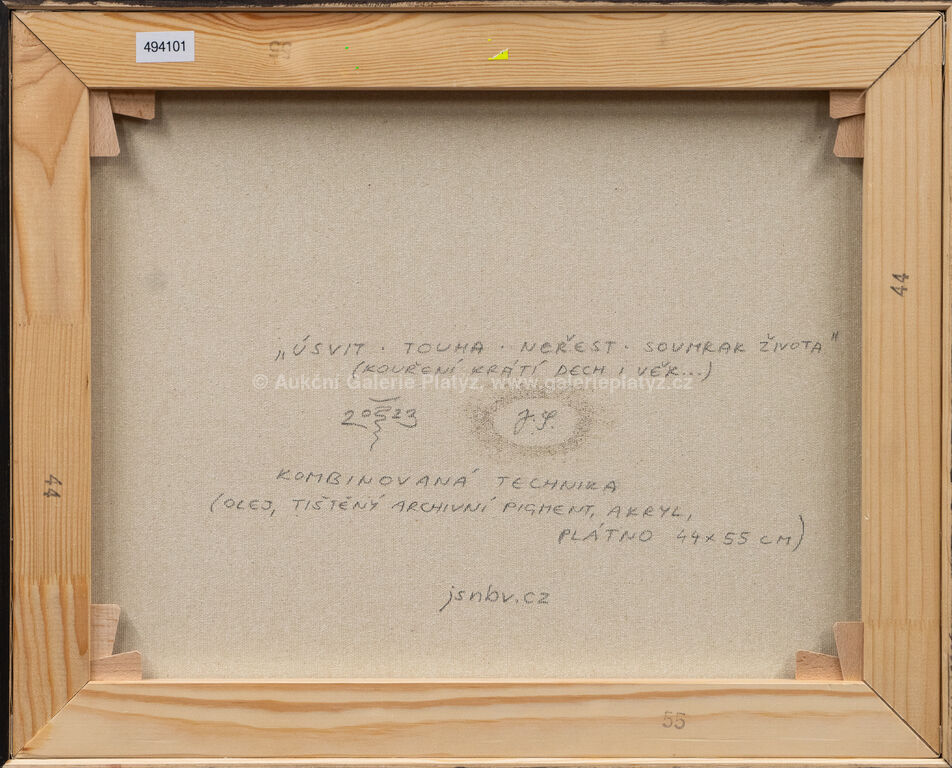 494101
55
44
„ÚSVIT · TOUHA · NEŘEST · SOUMRAK ŽIVOTA"
(KOUŘENÍ KRÁTÍ DECH I VĚK...)
© Aukční Galerie Platýz, www.galerieplatyz.cz
20523
J.S.
KOMBINOVANÁ TECHNIKA
44
(OLEJ, TIŠTĚNÝ ARCHIVNÍ PIGMENT, AKRYL,
PLÁTNO 44×55 CM)
jsnbv.cz
55